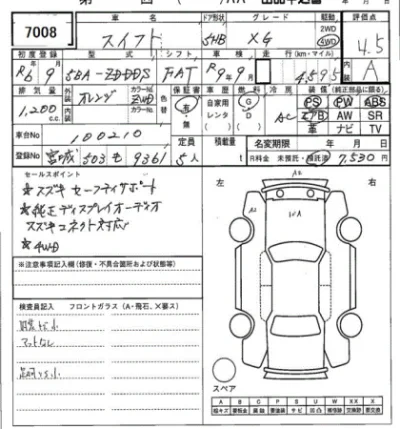 7008
車名 スイフト
ドア形状 5HB
グレード XG
駆動 2WD 4WD
評価点 4.5
初度登録 R6年9月
型式 5BA-ZDDDS
シフト FAT
車検 R9年9月
走行 (km・マイル) 4,595
内装 A
排気量 1,200 c.c.
外装色 オレンジ
カラーNo. ZWD
内装色
カラーNo.
色替
保証書 有・無
車歴 自家用 レンタ
燃料 G D
冷房 AC
装備 PS PW ABS
エアB AW SR
革 ナビ TV
車台No. 100210
登録No. 宮城 503 も 9361
定員 5人
積載量 t
名変期限 年 月 日
R料金 未預託・預託済 7,530円
セールスポイント
★スズキ セーフティサポート
★純正ディスプレイオーディオ
スズキコネクト対応
★4WD
左 右
※注意事項記入欄(修復・不具合箇所および状態等)
検査員記入 フロントガラス(A・飛石、×要ス)
マットなし
スペア